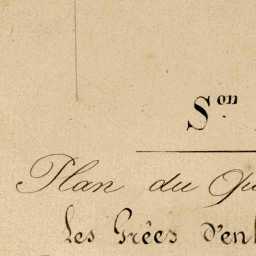 Son
Plan du Qu
Les Grées d'en